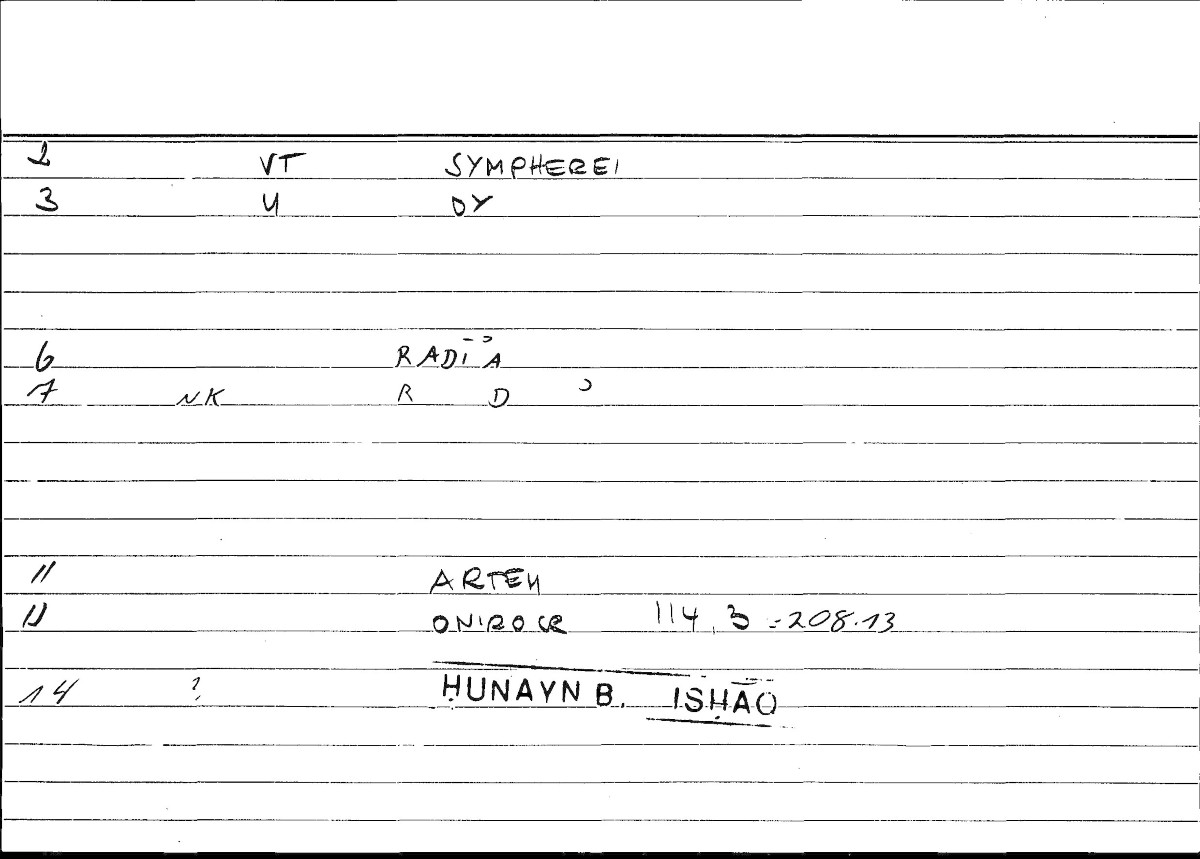 2 VT SYMPHEREI
3 U DY
6 RADĪʾA
7 NK R D ʾ
11 ARTEM
12 ONIROCR 114,3 = 208.13
14 ? ḤUNAYN B. ISḤĀQ